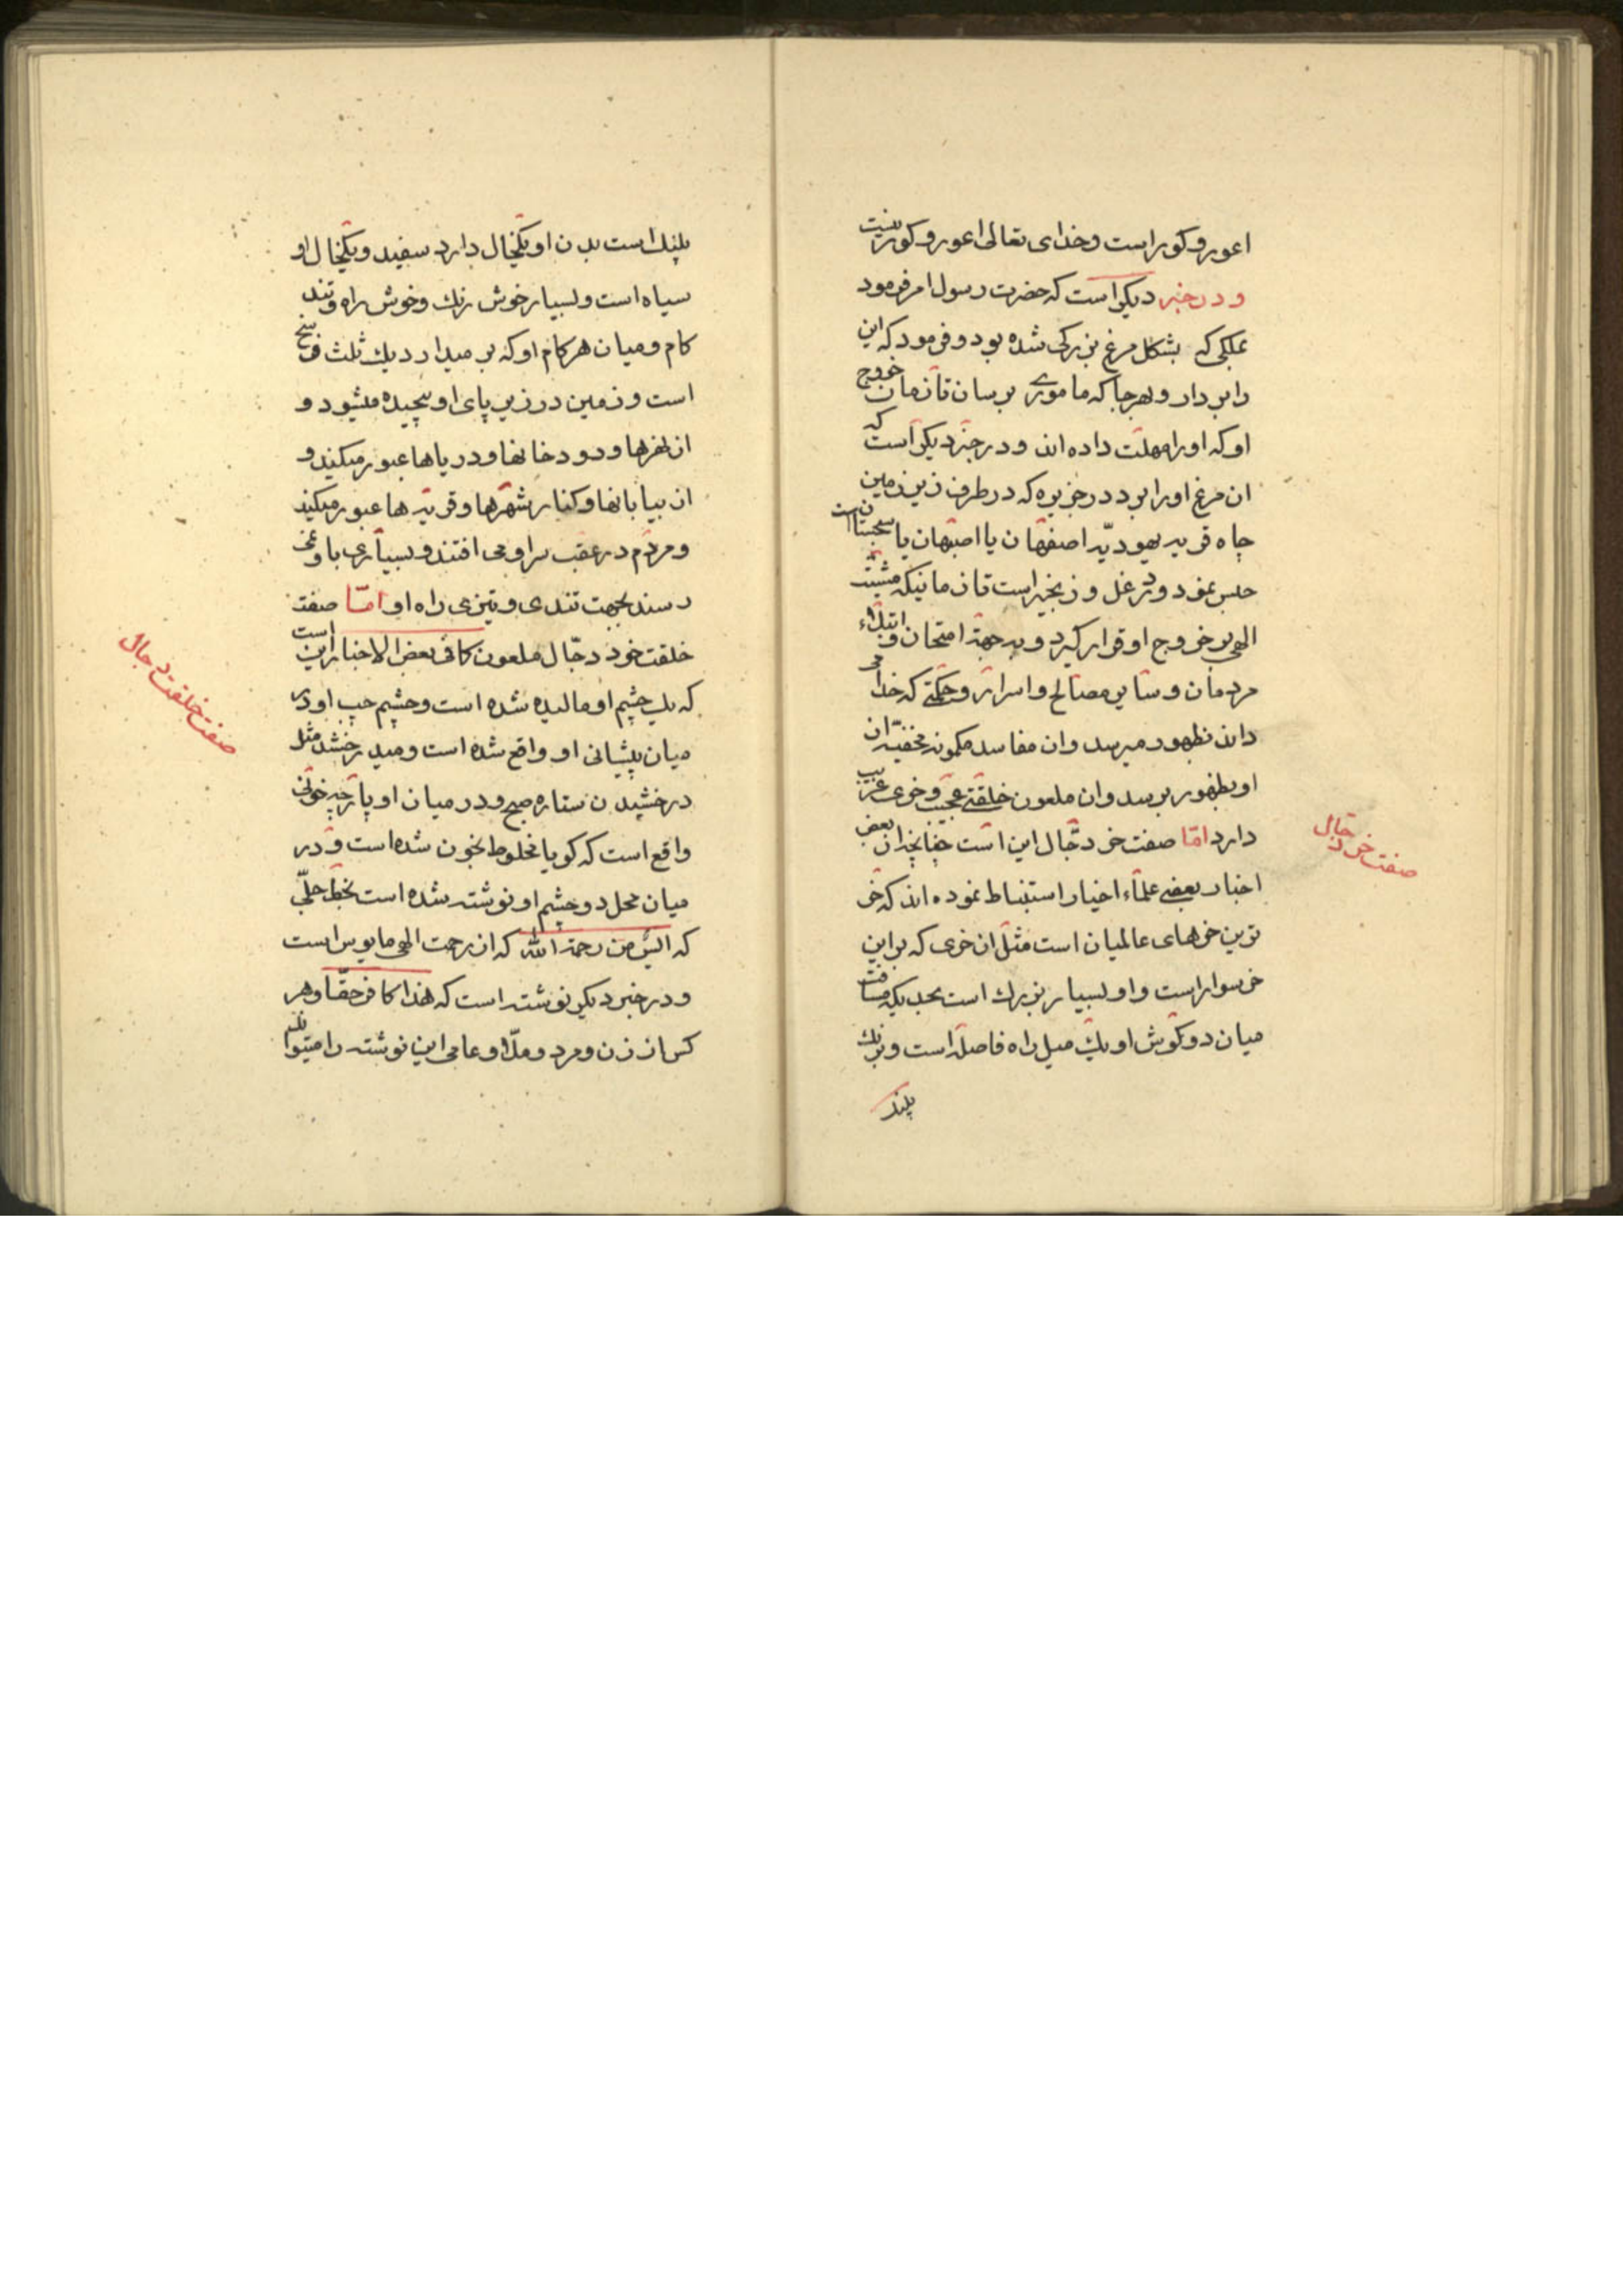 اعور و کور است و خدای تعالی اعور و کور نیست
و در خبر دیگر است که حضرت رسول امر فرمود
بملکی که بشکل مرغ بزرکی شده بود و فرمود که این
را بردار و بهر جا که ماموری برسان تا زمان خروج
او که او را مهلت داده اند و در خبر دیگر است که
ان مرغ او را برد در جزیره که در طرف زیر زمین
چاه قریه یهودیّه اصفهان یا اصبهان یا سجستان است
حبس نمود و در غل و زنجیر است تا زمانیکه مشیّت
الهی بر خروج او قرار کیرد و به جهة امتحان و ابتلاء
مردمان و سایر مصالح و اسرار و حکمتی که خدا می
داند بظهور میرسد و ان مفاسد مکمونه مخفیّه از
او بظهور برسد و ان ملعون خلقتی عجیب و خری غریب
دارد امّا صفت خر دجّال این است چنانچه از بعض
اخبار بعضی علماء اخیار استنباط نموده اند که خر
ترین خرهای عالمیان است مثل ان خری که بر این
خر سوار است و او بسیار بزرك است بحدیکه مسافت
میان دو کوش او یك میل راه فاصله است و برنك
پلنك
صفت خر دجّال
پلنك است بدن او یکخال دارد سفید و یکخال او
سیاه است و بسیار خوش رنك و خوش راه و تند
کام و میان هر کام او که بر میدارد یك ثلث فرسخ
است و زمین در زیر پای او پیچیده میشود و
از نهرها و رودخانها و دریاها عبور میکند و
از بیابانها و کنار شهرها و قریه ها عبور میکند
و مردم در عقب سر او می افتند و بسیاری باو نمی
رسند بجهت تندی و تیزی راه او امّا صفت
خلقت خود دجّال ملعون کما فی بعض الاخبار این است
که یك چشم او مالیده شده است و چشم چپ او در
میان پیشانی او واقع شده است و میدرخشد مثل
درخشیدن ستاره صبح و در میان او پارچه خونی
واقع است که کویا مخلوط بخون شده است و در
میان محل دو چشم او نوشته شده است بخط جلّی
که الیس من رحمة الله که از رحمت الهی مایوس است
و در خبر دیکر نوشته است که هذا کافر حقّا و هر
کس از زن و مرد و ملّا و عامی این نوشته را میتواند
صفت خلقت دجال